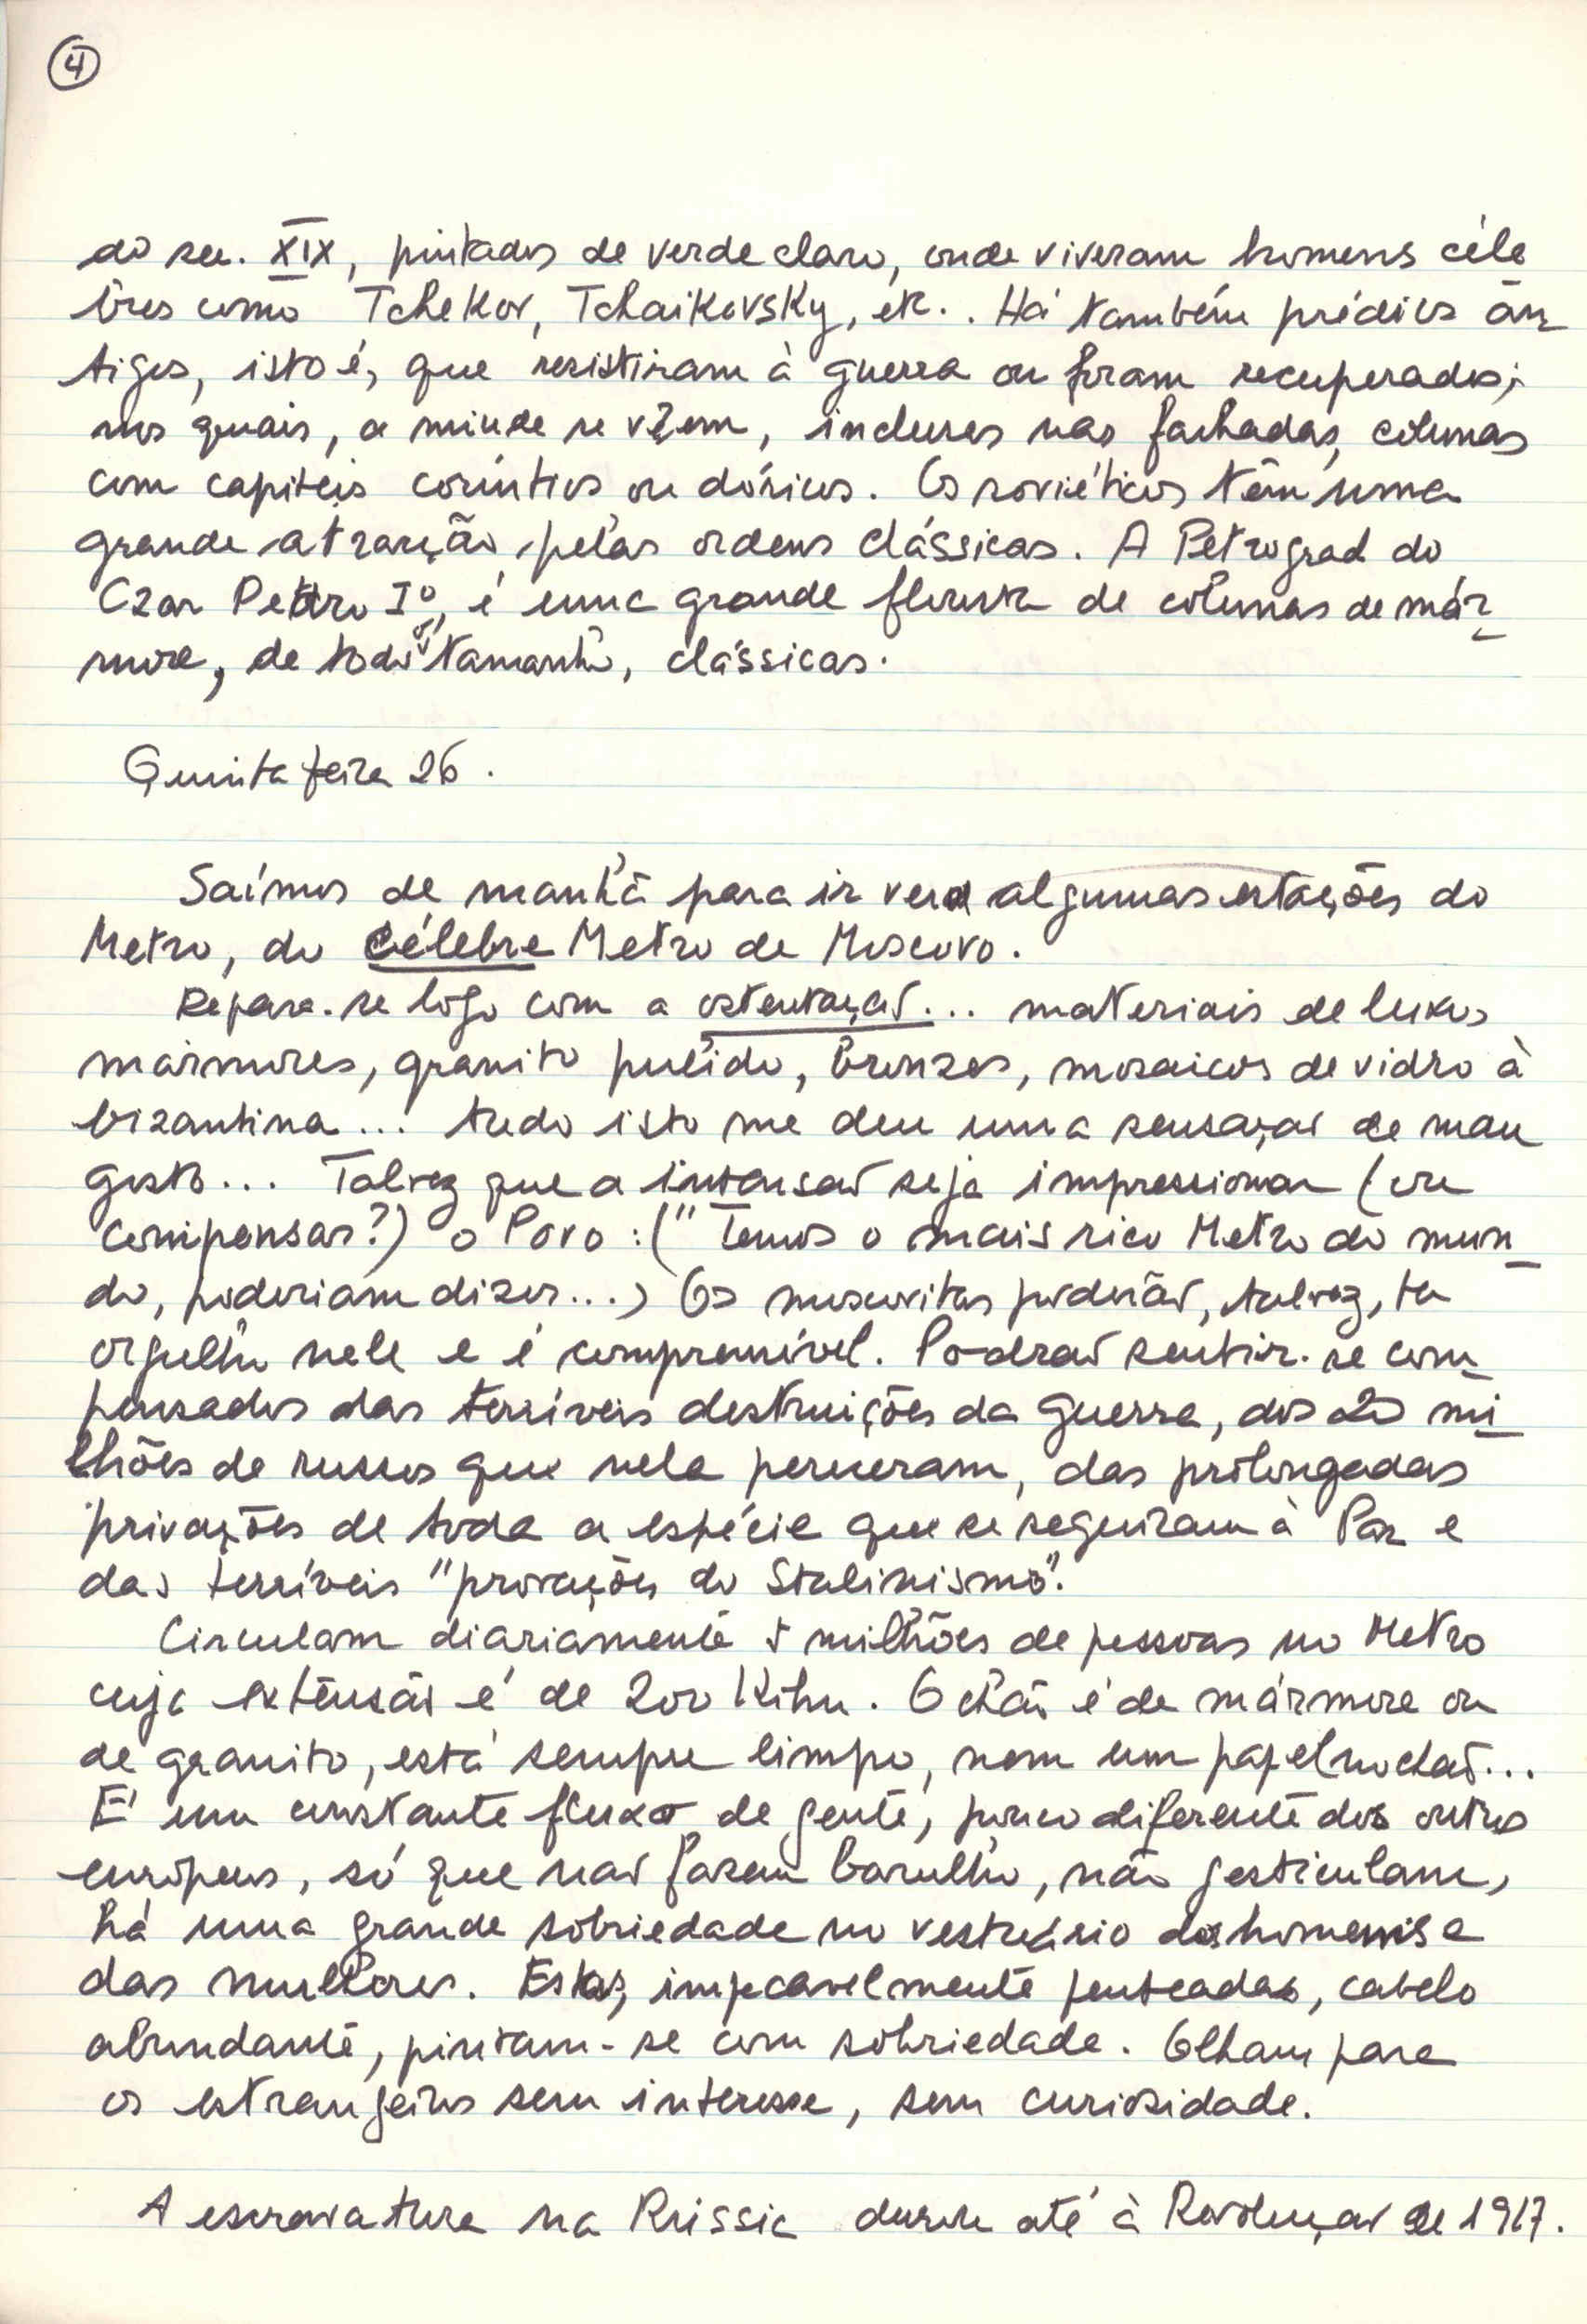 4
do sec. XIX, pintados de verde claro, onde viveram homens céle
bres como Tchekov, Tchaikovsky, etc.. Há também prédios an
tigos, isto é, que resistiram à guerra ou foram recuperados;
nos quais, a miude se vêem, inclusas nas fachadas, colunas
com capiteis coríntios ou dóricos. Os soviéticos têm uma
grande atracção pelas ordens clássicas. A Petrograd do
Czar Pedro Iº, é uma grande floresta de colunas de már-
more, de todo o tamanho, clássicas.
Quinta feira 26.
Saímos de manhã para ir ver algumas estações do
Metro, do célebre Metro de Moscovo.
Repara-se logo com a ostentação... materiais de luxo,
mármores, granito pulido, bronzes, mosaicos de vidro à
bizantina... tudo isto me deu uma sensação de mau
gosto... Talvez que a intensão seja impressionar (ou
compensar?) o Povo: ("Temos o mais rico Metro do mun-
do, poderiam dizer...) Os moscovitas poderão, talvez, ter
orgulho nele e é compreensível. Poderão sentir-se com-
pensados das terríveis destruições da guerra, dos 20 mi-
lhões de russos que nela pereceram, das prolongadas
privações de toda a espécie que se seguiram à Paz e
das terríveis "provações do Stalinismo".
Circulam diariamente 5 milhões de pessoas no Metro
cuja extensão é de 200 Kilm. O chão é de mármore ou
de granito, está sempre limpo, nem um papel no chão...
É um constante fluxo de gente, pouco diferente dos outros
europeus, só que não fazem barulho, não gesticulam,
há uma grande sobriedade no vestuário dos homens e
das mulheres. Estas, impecavelmente penteadas, cabelo
abundante, pintam-se com sobriedade. Olham para
os estrangeiros sem interesse, sem curiosidade.
A escravatura na Rússia durou até à Revolução de 1917.